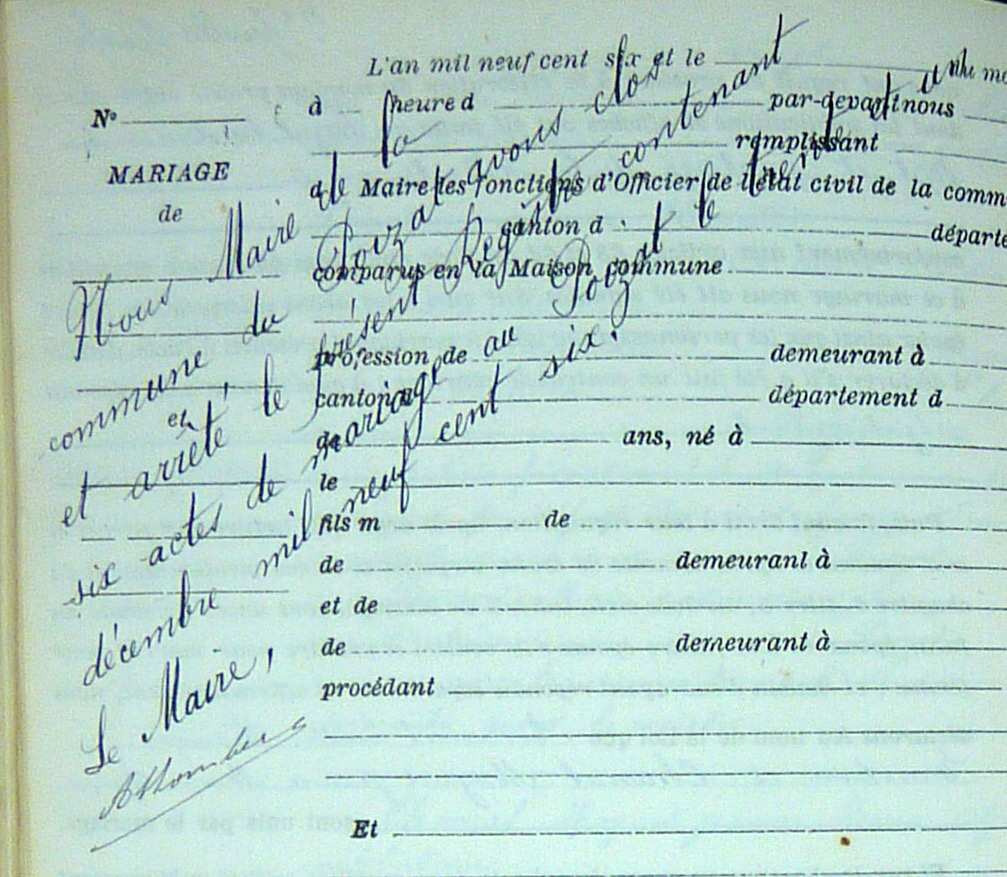 L'an mil neuf cent six et le
N° à heure d par-devant nous
remplissant
MARIAGE d Maire les fonctions d'Officier de l'état civil de la comm
de canton d départe
comparus en la Maison commune
profession de demeurant à
canton d département d
et de ans, né à
le
fils m de
de demeurant à
et de
de demeurant à
procédant
Et
Nous Maire de la
commune du Poizat avons clos
et arrêté le présent Registre contenant
six actes de mariage au Poizat le trente et un
décembre mil neuf cent six.
Le Maire,